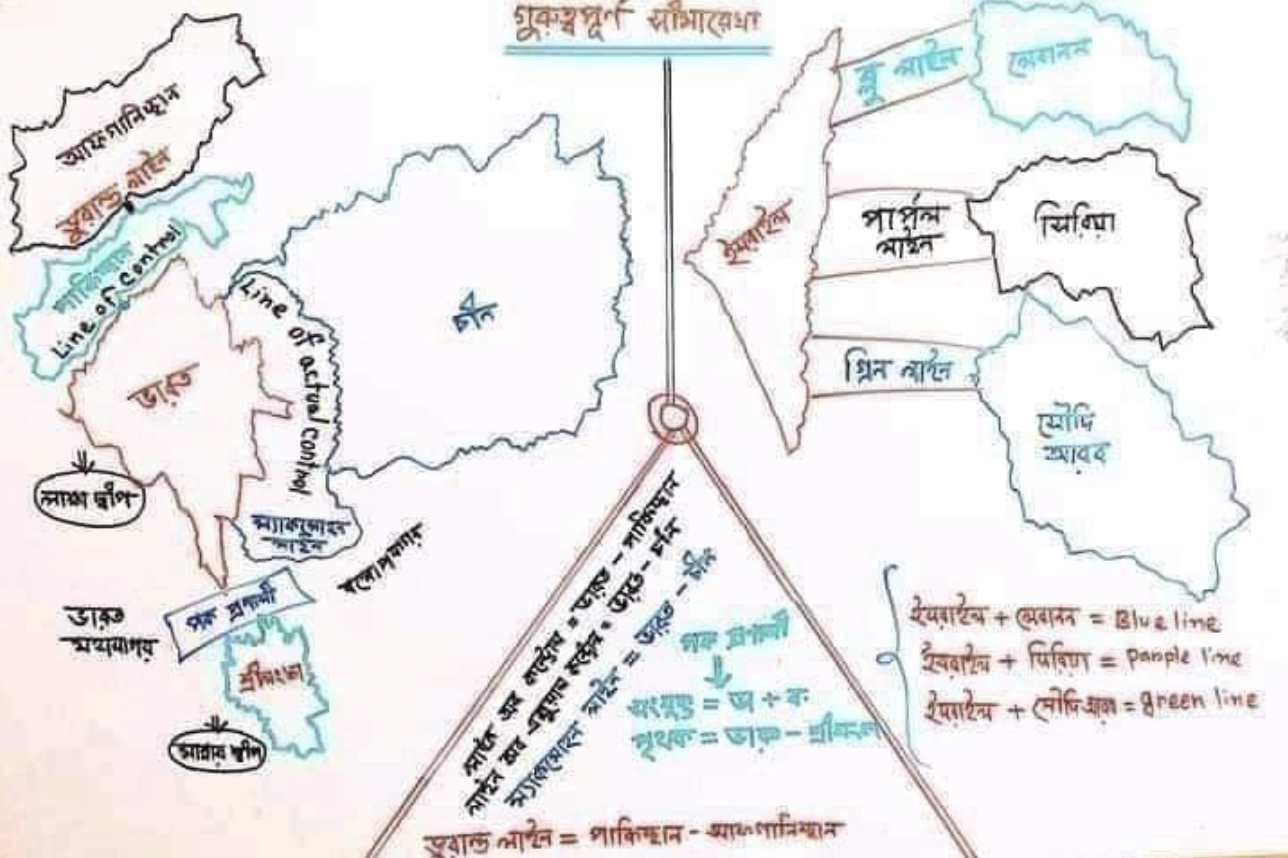 গুরুত্বপূর্ণ সীমারেখা
আফগানিস্থান
ডুরান্ড লাইন
পাকিস্থান
Line of control
ভারত
Line of actual control
চীন
লাক্ষা দ্বীপ
ম্যাকমোহন
লাইন
বঙ্গোপসাগর
ভারত
মহাসাগর
পক প্রণালী
শ্রীলংকা
মান্নার দ্বীপ
ইসরাইল
ব্লু লাইন
লেবানন
পার্পল
লাইন
সিরিয়া
গ্রিন লাইন
সৌদি
আরব
লাইন অব কন্ট্রোল = ভারত - পাকিস্থান
লাইন অব একচুয়াল কন্ট্রোল = ভারত - চীন
ম্যাকমোহন লাইন = ভারত - চীন
পক প্রণালী
সংযুক্ত = ভা + ব:
পৃথক = ভারত - শ্রীলংকা
ডুরান্ড লাইন = পাকিস্থান - আফগানিস্থান
ইসরাইল + লেবানন = Blue line
ইসরাইল + সিরিয়া = Parple line
ইসরাইল + সৌদি আরব = green line